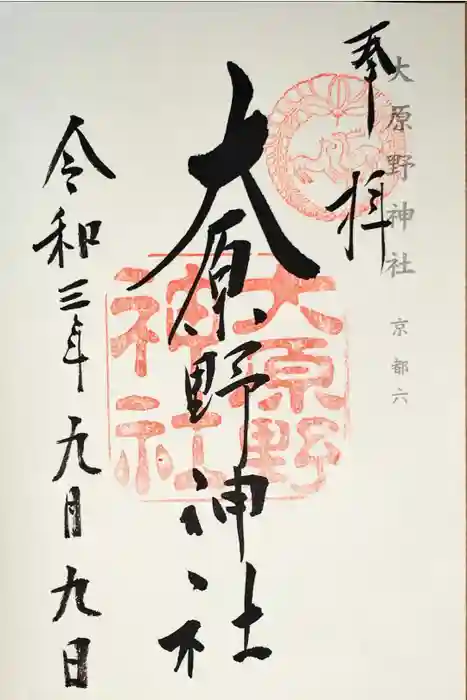 奉拝
大原野神社 京都六
大原野神社
大原野
神社
令和三年九月九日